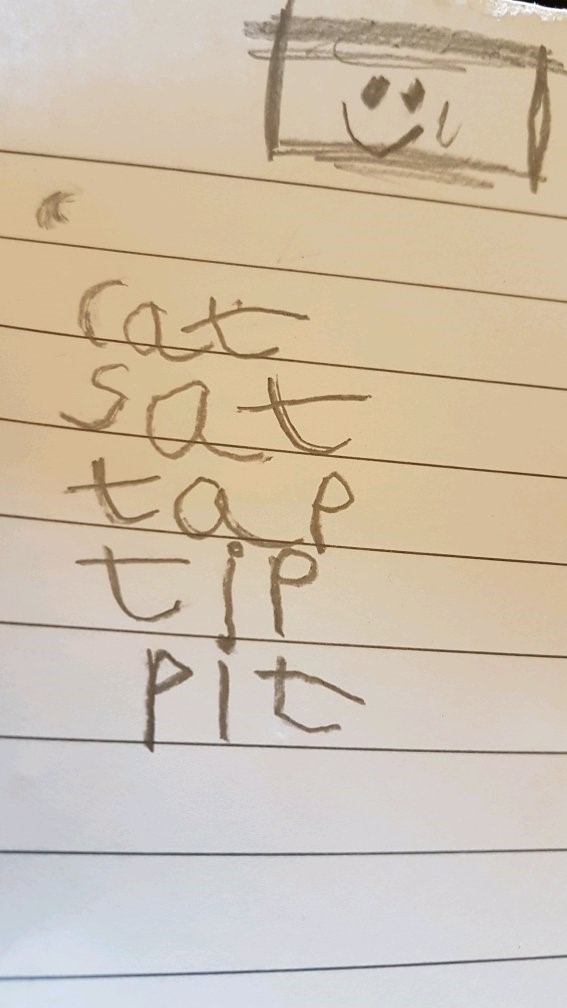 cat
sat
tap
tip
pit